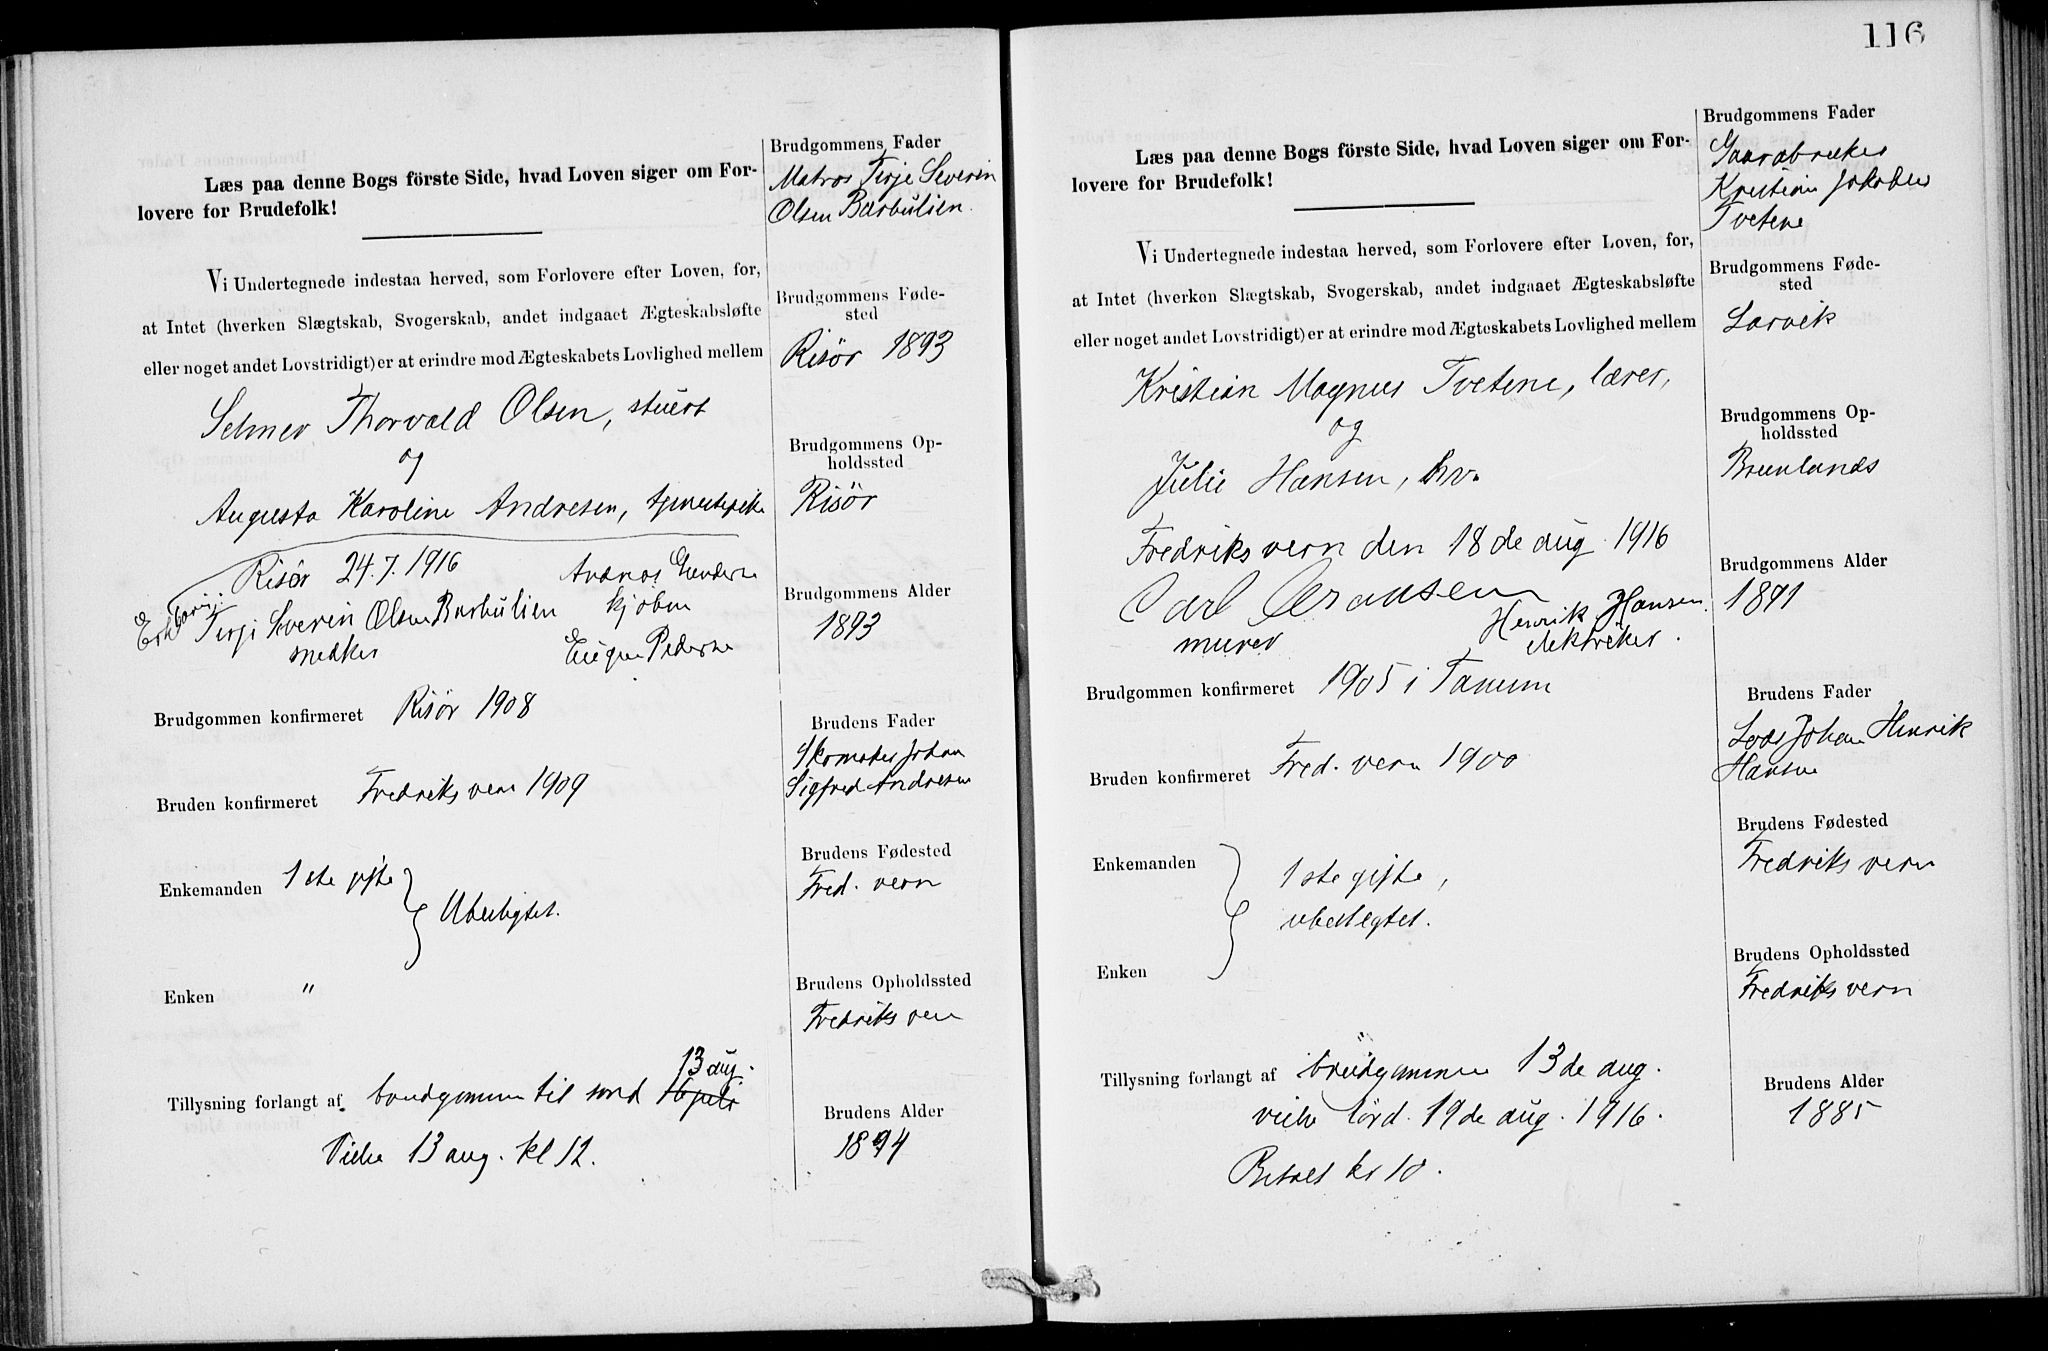 Læs paa denne Bogs förste Side, hvad Loven siger om For-
lovere for Brudefolk!
Vi Undertegnede indestaa herved, som Forlovere efter Loven, for,
at Intet (hverken Slægtskab, Svogerskab, andet indgaaet Ægteskabsløfte
eller noget andet Lovstridigt) er at erindre mod Ægteskabets Lovlighed mellem
Selmer Thorvald Olsen, stuert
og
Augusta Karoline Andresen, tjenestepike
Risör 24.7.1916
Terje Severin Olsen Barbulien
snedker
Eugen Pedersen
Brudgommen konfirmeret Risör 1908
Bruden konfirmeret Fredriksvern 1909
Enkemanden 1ste gifte
Ubeslegtet.
Enken "
13 aug.
Tillysning forlangt af brudgommen til sönd
Vielse 13 aug. kl 12.
Brudgommens Fader
Matros Terje Severin
Olsen Barbulien.
Brudgommens Føde-
sted
Risör 1893
Brudgommens Op-
holdssted
Risör
Brudgommens Alder
1893
Brudens Fader
Skomaker Johan
Sigfred Andresen
Brudens Fødested
Fred.vern
Brudens Opholdssted
Fredriksvern
Brudens Alder
1894
116
Læs paa denne Bogs förste Side, hvad Loven siger om For-
lovere for Brudefolk!
Vi Undertegnede indestaa herved, som Forlovere efter Loven, for,
at Intet (hverken Slægtskab, Svogerskab, andet indgaaet Ægteskabsløfte
eller noget andet Lovstridigt) er at erindre mod Ægteskabets Lovlighed mellem
Kristian Magnus Tvetene, lærer,
og
Julie Hansen, hv.
Fredriksvern den 18de aug. 1916
Carl
murer
Henrik Hansen.
elektriker.
Brudgommen konfirmeret 1905 i Tanum
Bruden konfirmeret Fred.vern 1900
Enkemanden
1ste gifte,
ubeslegtet.
Enken
Tillysning forlangt af brudgommen 13de aug.
vielse lörd. 19de aug. 1916.
Betalt kr 10.
Brudgommens Fader
Gaardbruker
Kristian Jakobsen
Tvetene
Brudgommens Føde-
sted
Larvik
Brudgommens Op-
holdssted
Brunlanes
Brudgommens Alder
1891
Brudens Fader
Lods Johan Henrik
Hansen
Brudens Fødested
Fredriksvern
Brudens Opholdssted
Fredriksvern
Brudens Alder
1885